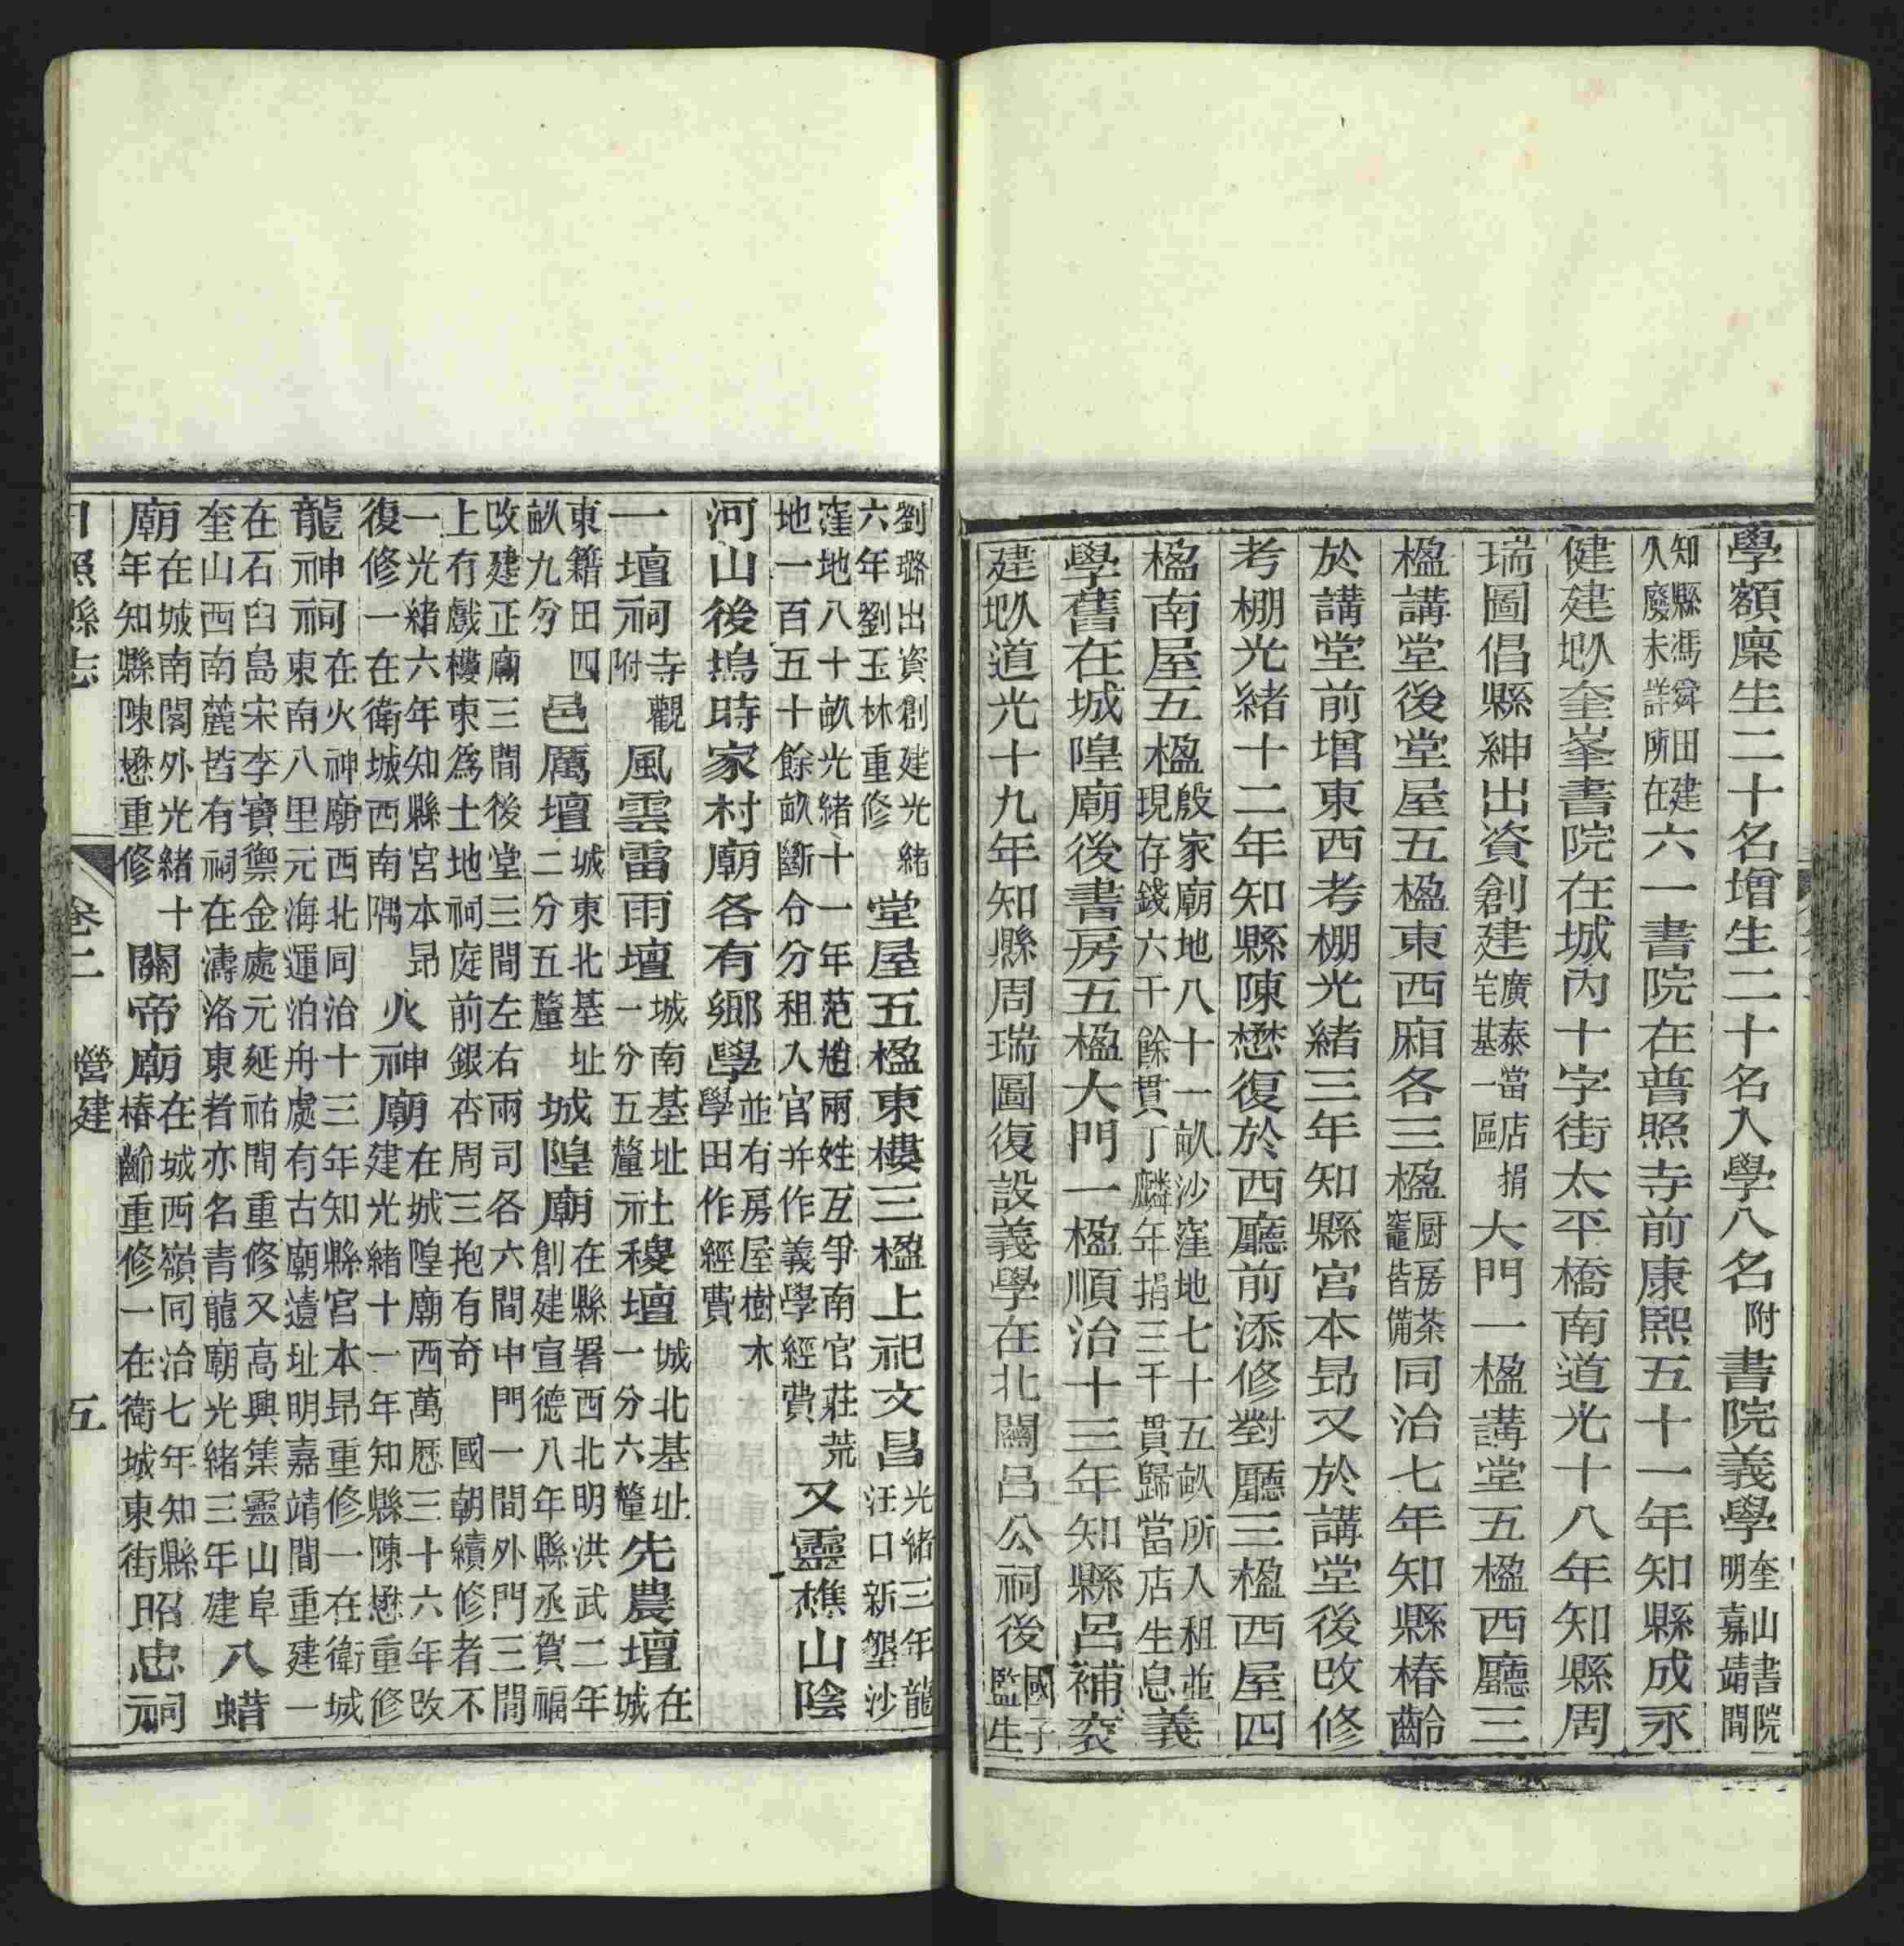 學額廩生二十名增生二十名入學八名附書院義學奎山書院明嘉靖間
知縣馮舜田建久廢未詳所在六一書院在普照寺前康熙五十一年知縣成永
健建久圮奎峯書院在城內十字街太平橋南道光十八年知縣周
瑞圖倡縣紳出資創建廣泰當店捐宅基一區大門一楹講堂五楹西廳三
楹講堂後堂屋五楹東西廂各三楹厨房茶竈皆備同治七年知縣椿齡
於講堂前增東西考棚光緒三年知縣宮本昂又於講堂後改修
考棚光緒十二年知縣陳懋復於西廳前添修對廳三楹西屋四
楹南屋五楹殷家廟地八十一畝沙窪地七十五畝所入租並現存錢六千餘貫丁麟年捐三千貫歸當店生息義
學舊在城隍廟後書房五楹大門一楹順治十三年知縣呂補袞
建久圮道光十九年知縣周瑞圖復設義學在北關呂公祠後國子監生
劉璐出資創建光緒六年劉玉林重修堂屋五楹東樓三楹上祀文昌光緒三年龍汪口新墾沙
窪地八十畝光緒十一年范趙兩姓互爭南官莊荒地一百五十餘畝斷令分租入官幷作義學經費又靈樵山陰
河山後塢時家村廟各有鄉學並有房屋樹木學田作經費
一壇祠寺觀附風雲雷雨壇城南基址一分五釐社稷壇城北基址一分六釐先農壇在城
東籍田四畝九分邑厲壇城東北基址二分五釐城隍廟在縣署西北明洪武二年創建宣德八年縣丞賀福
改建正廟三間後堂三間左右兩司各六間中門一間外門三間上有戲樓東爲土地祠庭前銀杏周三抱有奇國朝續修者不
一光緒六年知縣宮本昂復修一在衛城西南隅火神廟在城隍廟西萬歷三十六年改建光緒十一年知縣陳懋重修
龍神祠在火神廟西北同治十三年知縣宮本昂重修一在衛城東南八里元海運泊舟處有古廟遺址明嘉靖間重建一
在石臼島宋李寶禦金處元延祐間重修又高興集靈山阜奎山西南麓皆有祠在濤洛東者亦名青龍廟光緒三年建八蜡
廟在城南閣外光緒十年知縣陳懋重修關帝廟在城西嶺同治七年知縣椿齡重修一在衛城東街昭忠祠
日照縣志 卷二 營建 五